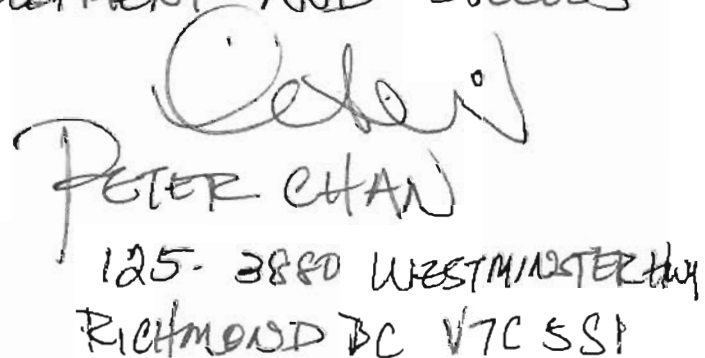 AND
PETER CHAN
125- 3880 WESTMINSTER HWY
RICHMOND BC V7C 5S1